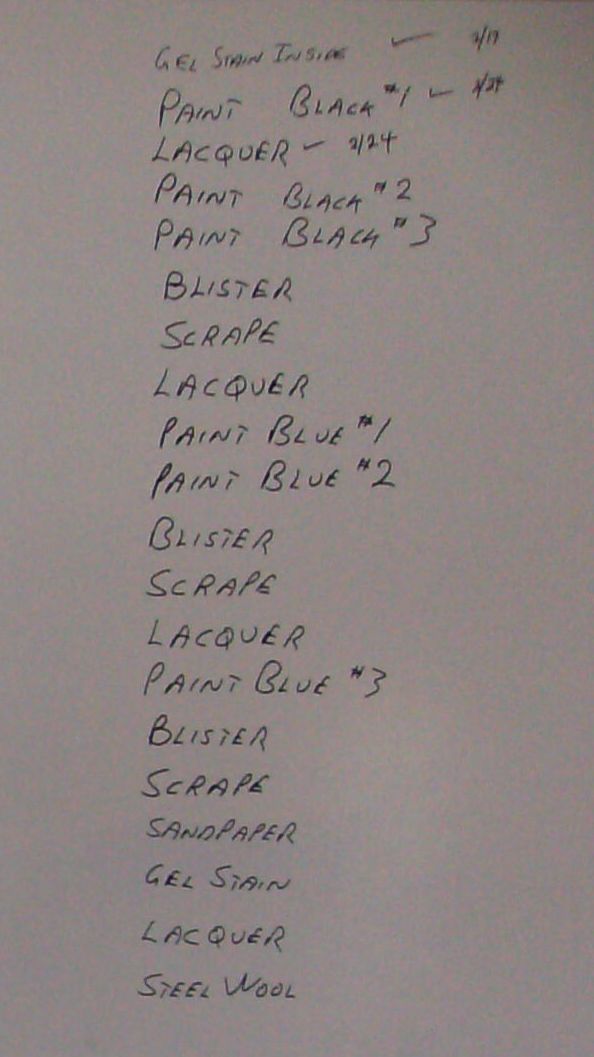 GEL STAIN INSIDE ✓ 2/19
PAINT BLACK #1 ✓ 2/24
LACQUER ✓ 2/24
PAINT BLACK #2
PAINT BLACK #3
BLISTER
SCRAPE
LACQUER
PAINT BLUE #1
PAINT BLUE #2
BLISTER
SCRAPE
LACQUER
PAINT BLUE #3
BLISTER
SCRAPE
SANDPAPER
GEL STAIN
LACQUER
STEEL WOOL